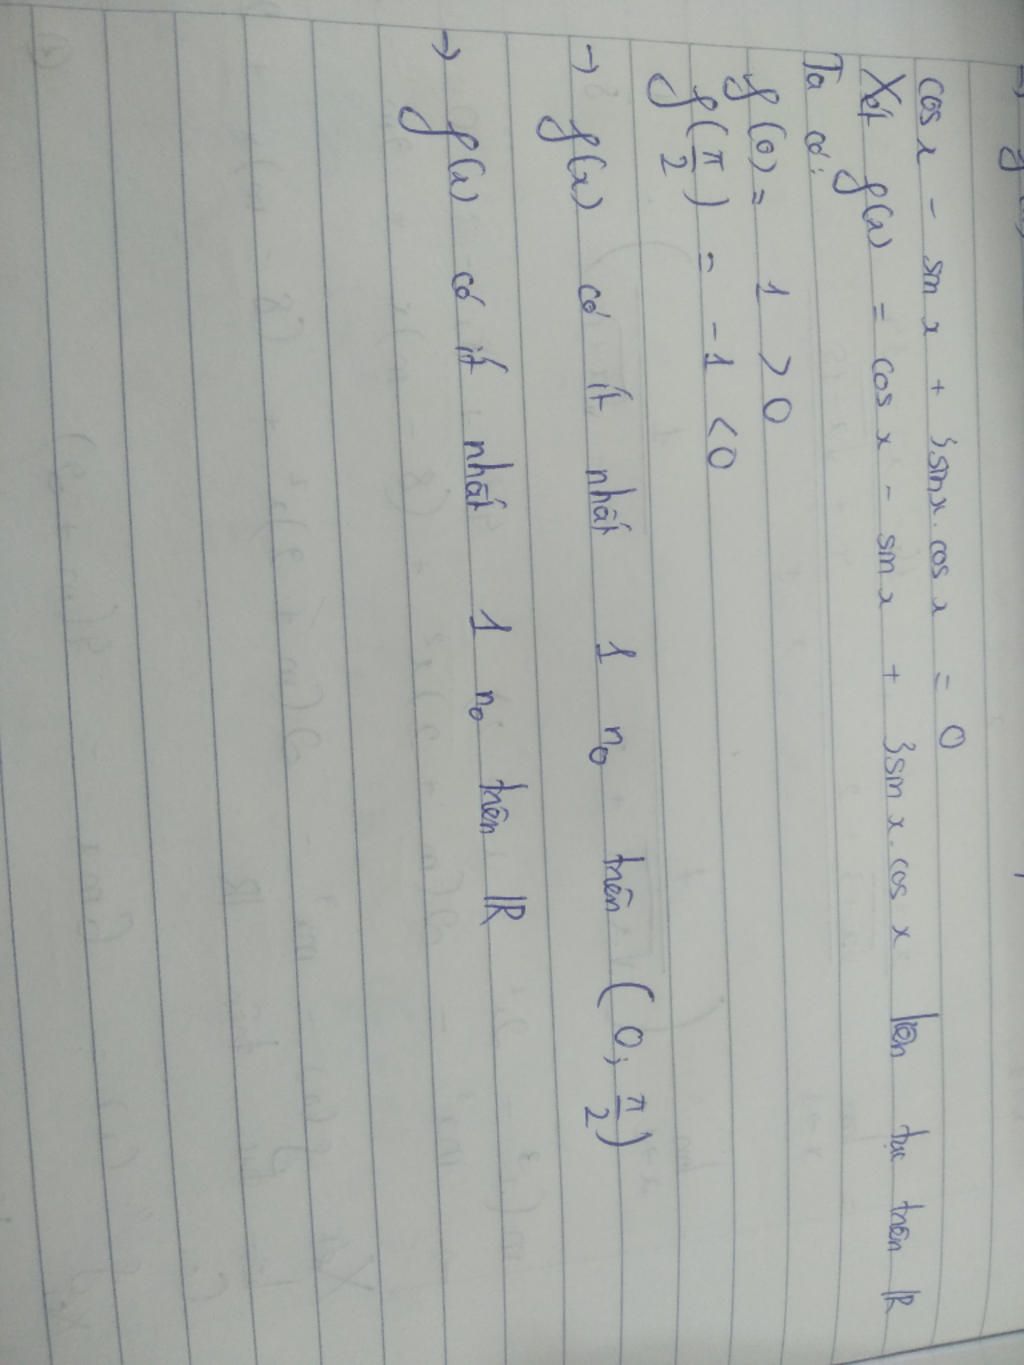 cos x - sin x + 3sinx.cos x = 0
Xét f(x) = cos x - sin x + 3sin x.cos x liên tục trên ℝ
Ta có:
f(0) = 1 > 0
f(π/2) = -1 < 0
→ f(x) có ít nhất 1 n₀ trên (0; π/2)
→ f(x) có ít nhất 1 n₀ trên ℝ